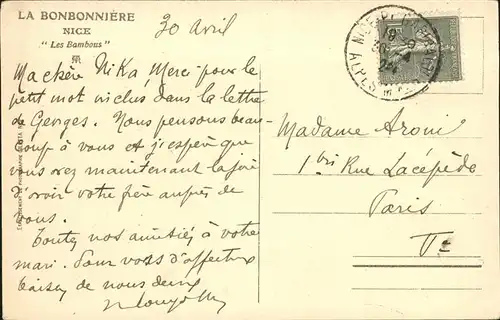 LA BONBONNIÈRE
NICE
"Les Bambous"
30 Avril
Ma chère Nika, Merci pour le
petit mot inclus dans la lettre
de Georges. Nous pensons beau-
coup à vous et j'espère que
vous avez maintenant la joie
d'avoir votre frère auprès de
vous.
Toutes nos amitiés à votre
mari. Pour vous d'affectueux
baisers de nous deux
Madame Aroni
1 bis Rue Lacépède
Paris
Ve
NICE
ALPES